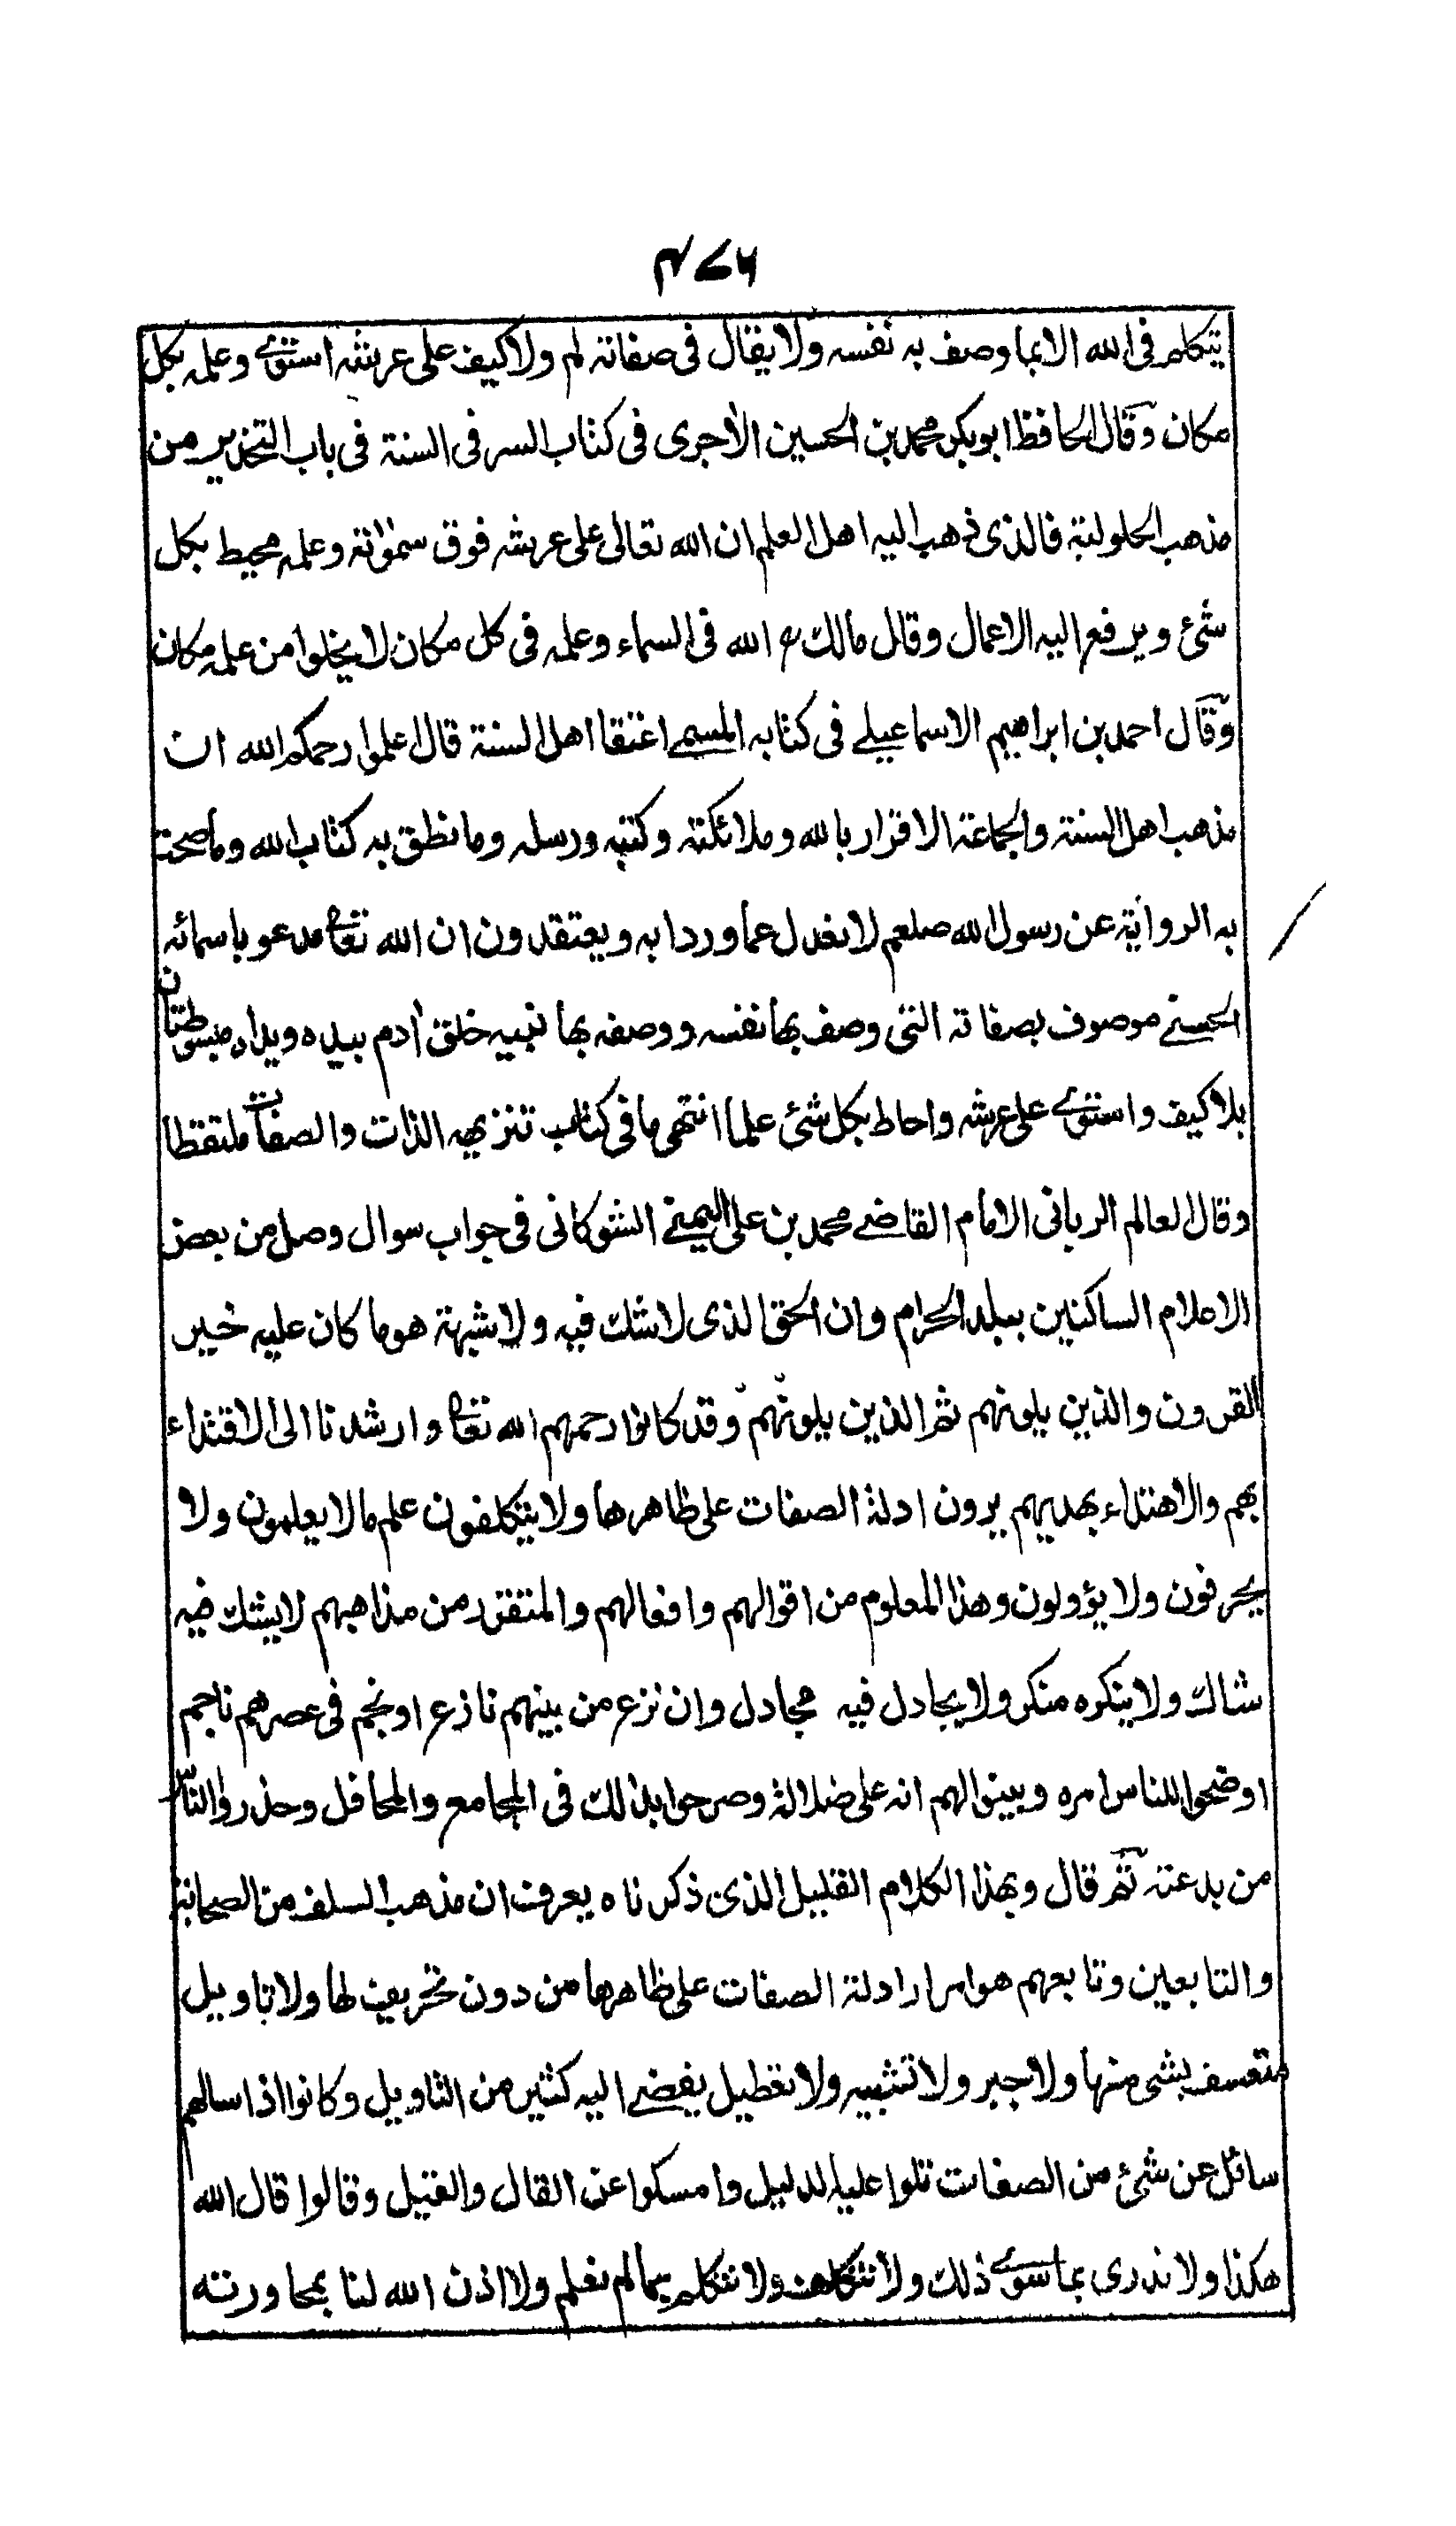 ۴۷۶
يتكلم فى الله الا بما وصف به نفسه ولا يقال فى صفاته لم ولا كيف على عرشه استوے وعلمه بكل
مكان وقال الحافظ ابو بكر محمد بن الحسين الاجرى فى كتاب السر فى السنة فى باب التحذير من
مذهب الحلولية فالذى ذهب اليه اهل العلم ان الله تعالى على عرشه فوق سموٰاته وعلمه محيط بكل
شئ ويرفع اليه الاعمال وقال مالك رح الله فى السماء وعلمه فى كل مكان لا يخلوا من علمه مكان
وقال احمد بن ابراهيم الاسماعيلے فى كتابه المسمے اعتقا اهل السنة قال اعلموا رحمكم الله ان
مذهب اهل السنة والجماعة الاقرار بالله وملائكته وكتبه ورسله وما نطق به كتاب الله وما صحت
به الرواية عن رسول الله صلعم لا نعدل عما وردا به ويعتقدون ان الله تعا مدعو باسمائه
الحسنے موصوف بصفاته التى وصف بها نفسه ووصفه بها نبيه خلق اٰدم بيده ويداه مبسوطتان
بلا كيف واستوے على عرشه واحاط بكل شئ علما انتهى ما فى كتاب تنزيه الذات والصفات ملتقطا
وقال العالم الربانى الامام القاضے محمد بن على اليمنے الشوكانى فى جواب سوال وصل من بعض
الاعلام الساكنين ببلد الحرام وان الحق الذى لا شك فيه ولا شبهة هو ما كان عليه خير
القرون والذين يلونهم ثم الذين يلونهم وقد كانوا رحمهم الله تعا وارشدنا الى الاقتداء
بهم والاهتداء بهديهم يرون ادلة الصفات على ظاهرها ولا يتكلفون علم ما لا يعلمون ولا
يحرفون ولا يؤولون وهذا المعلوم من اقوالهم وافعالهم والمتقرر من مذاهبهم لا يشك فيه
شاك ولا ينكره منكر ولا يجادل فيه مجادل وان نزع من بينهم نازع او نجم فى عصرهم ناجم
اوضحوا للناس امره وبينوا لهم انه على ضلالة وصرحوا بذلك فى المجامع والمحافل وحذروا الناس
من بدعته ثم قال وبهذا الكلام القليل الذى ذكرناه يعرف ان مذهب السلف من الصحابة
والتابعين وتابعهم هو امرار ادلة الصفات على ظاهرها من دون تحريف لها ولا تاويل
متعسف بشى منها ولا جبر ولا تشبيه ولا تعطيل يفضے اليه كثير من التاويل وكانوا اذا سالهم
سائل عن شئ من الصفات تلوا عليه الدليل وامسكوا عن القال والقيل وقالوا قال الله
هكذا ولا ندرى بما سوے ذلك ولا نتكلف ولا نتكلم بما لم نعلم ولا اذن الله لنا بمجاورته